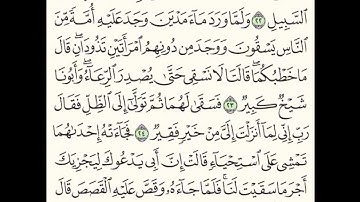 ٱلسَّبِيلِ ٢٢ وَلَمَّا وَرَدَ مَآءَ مَدْيَنَ وَجَدَ عَلَيْهِ أُمَّةً مِّنَ
ٱلنَّاسِ يَسْقُونَ وَوَجَدَ مِن دُونِهِمُ ٱمْرَأَتَيْنِ تَذُودَانِۖ قَالَ
مَا خَطْبُكُمَاۖ قَالَتَا لَا نَسْقِى حَتَّىٰ يُصْدِرَ ٱلرِّعَآءُۖ وَأَبُونَا
شَيْخٌ كَبِيرٌ ٢٣ فَسَقَىٰ لَهُمَا ثُمَّ تَوَلَّىٰٓ إِلَى ٱلظِّلِّ فَقَالَ
رَبِّ إِنِّى لِمَآ أَنزَلْتَ إِلَىَّ مِنْ خَيْرٍ فَقِيرٌ ٢٤ فَجَآءَتْهُ إِحْدَىٰهُمَا
تَمْشِى عَلَى ٱسْتِحْيَآءٍ قَالَتْ إِنَّ أَبِى يَدْعُوكَ لِيَجْزِيَكَ
أَجْرَ مَا سَقَيْتَ لَنَاۚ فَلَمَّا جَآءَهُۥ وَقَصَّ عَلَيْهِ ٱلْقَصَصَ قَالَ